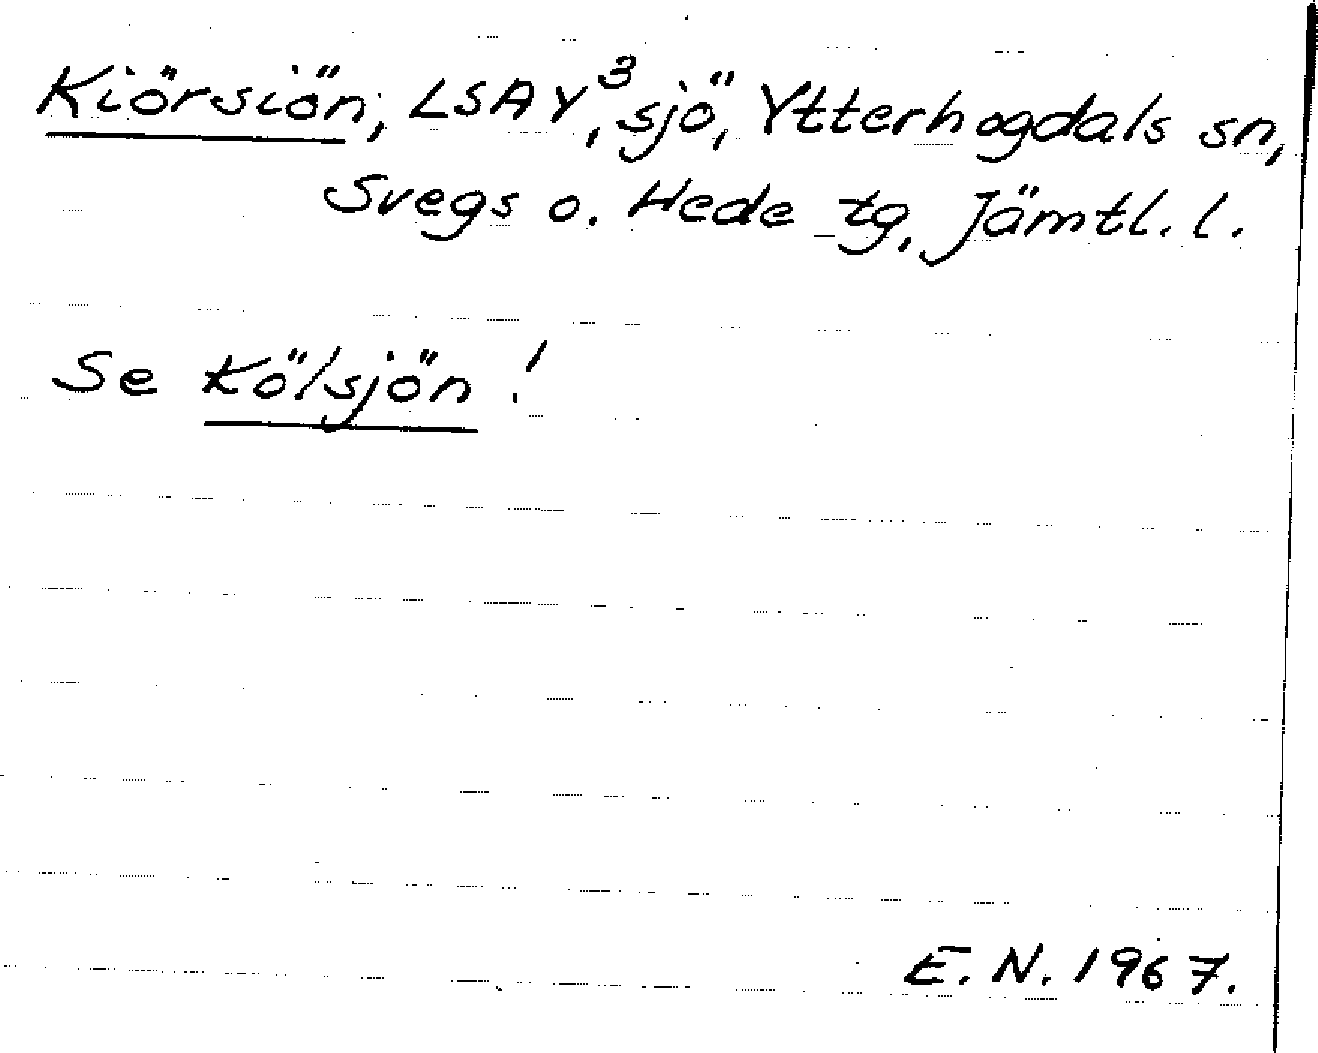 Kiörsiön, LSAY³, sjö, Ytterhogdals sn,
Svegs o. Hede tg, Jämtl. l.
Se Kölsjön!
E. N. 1967.